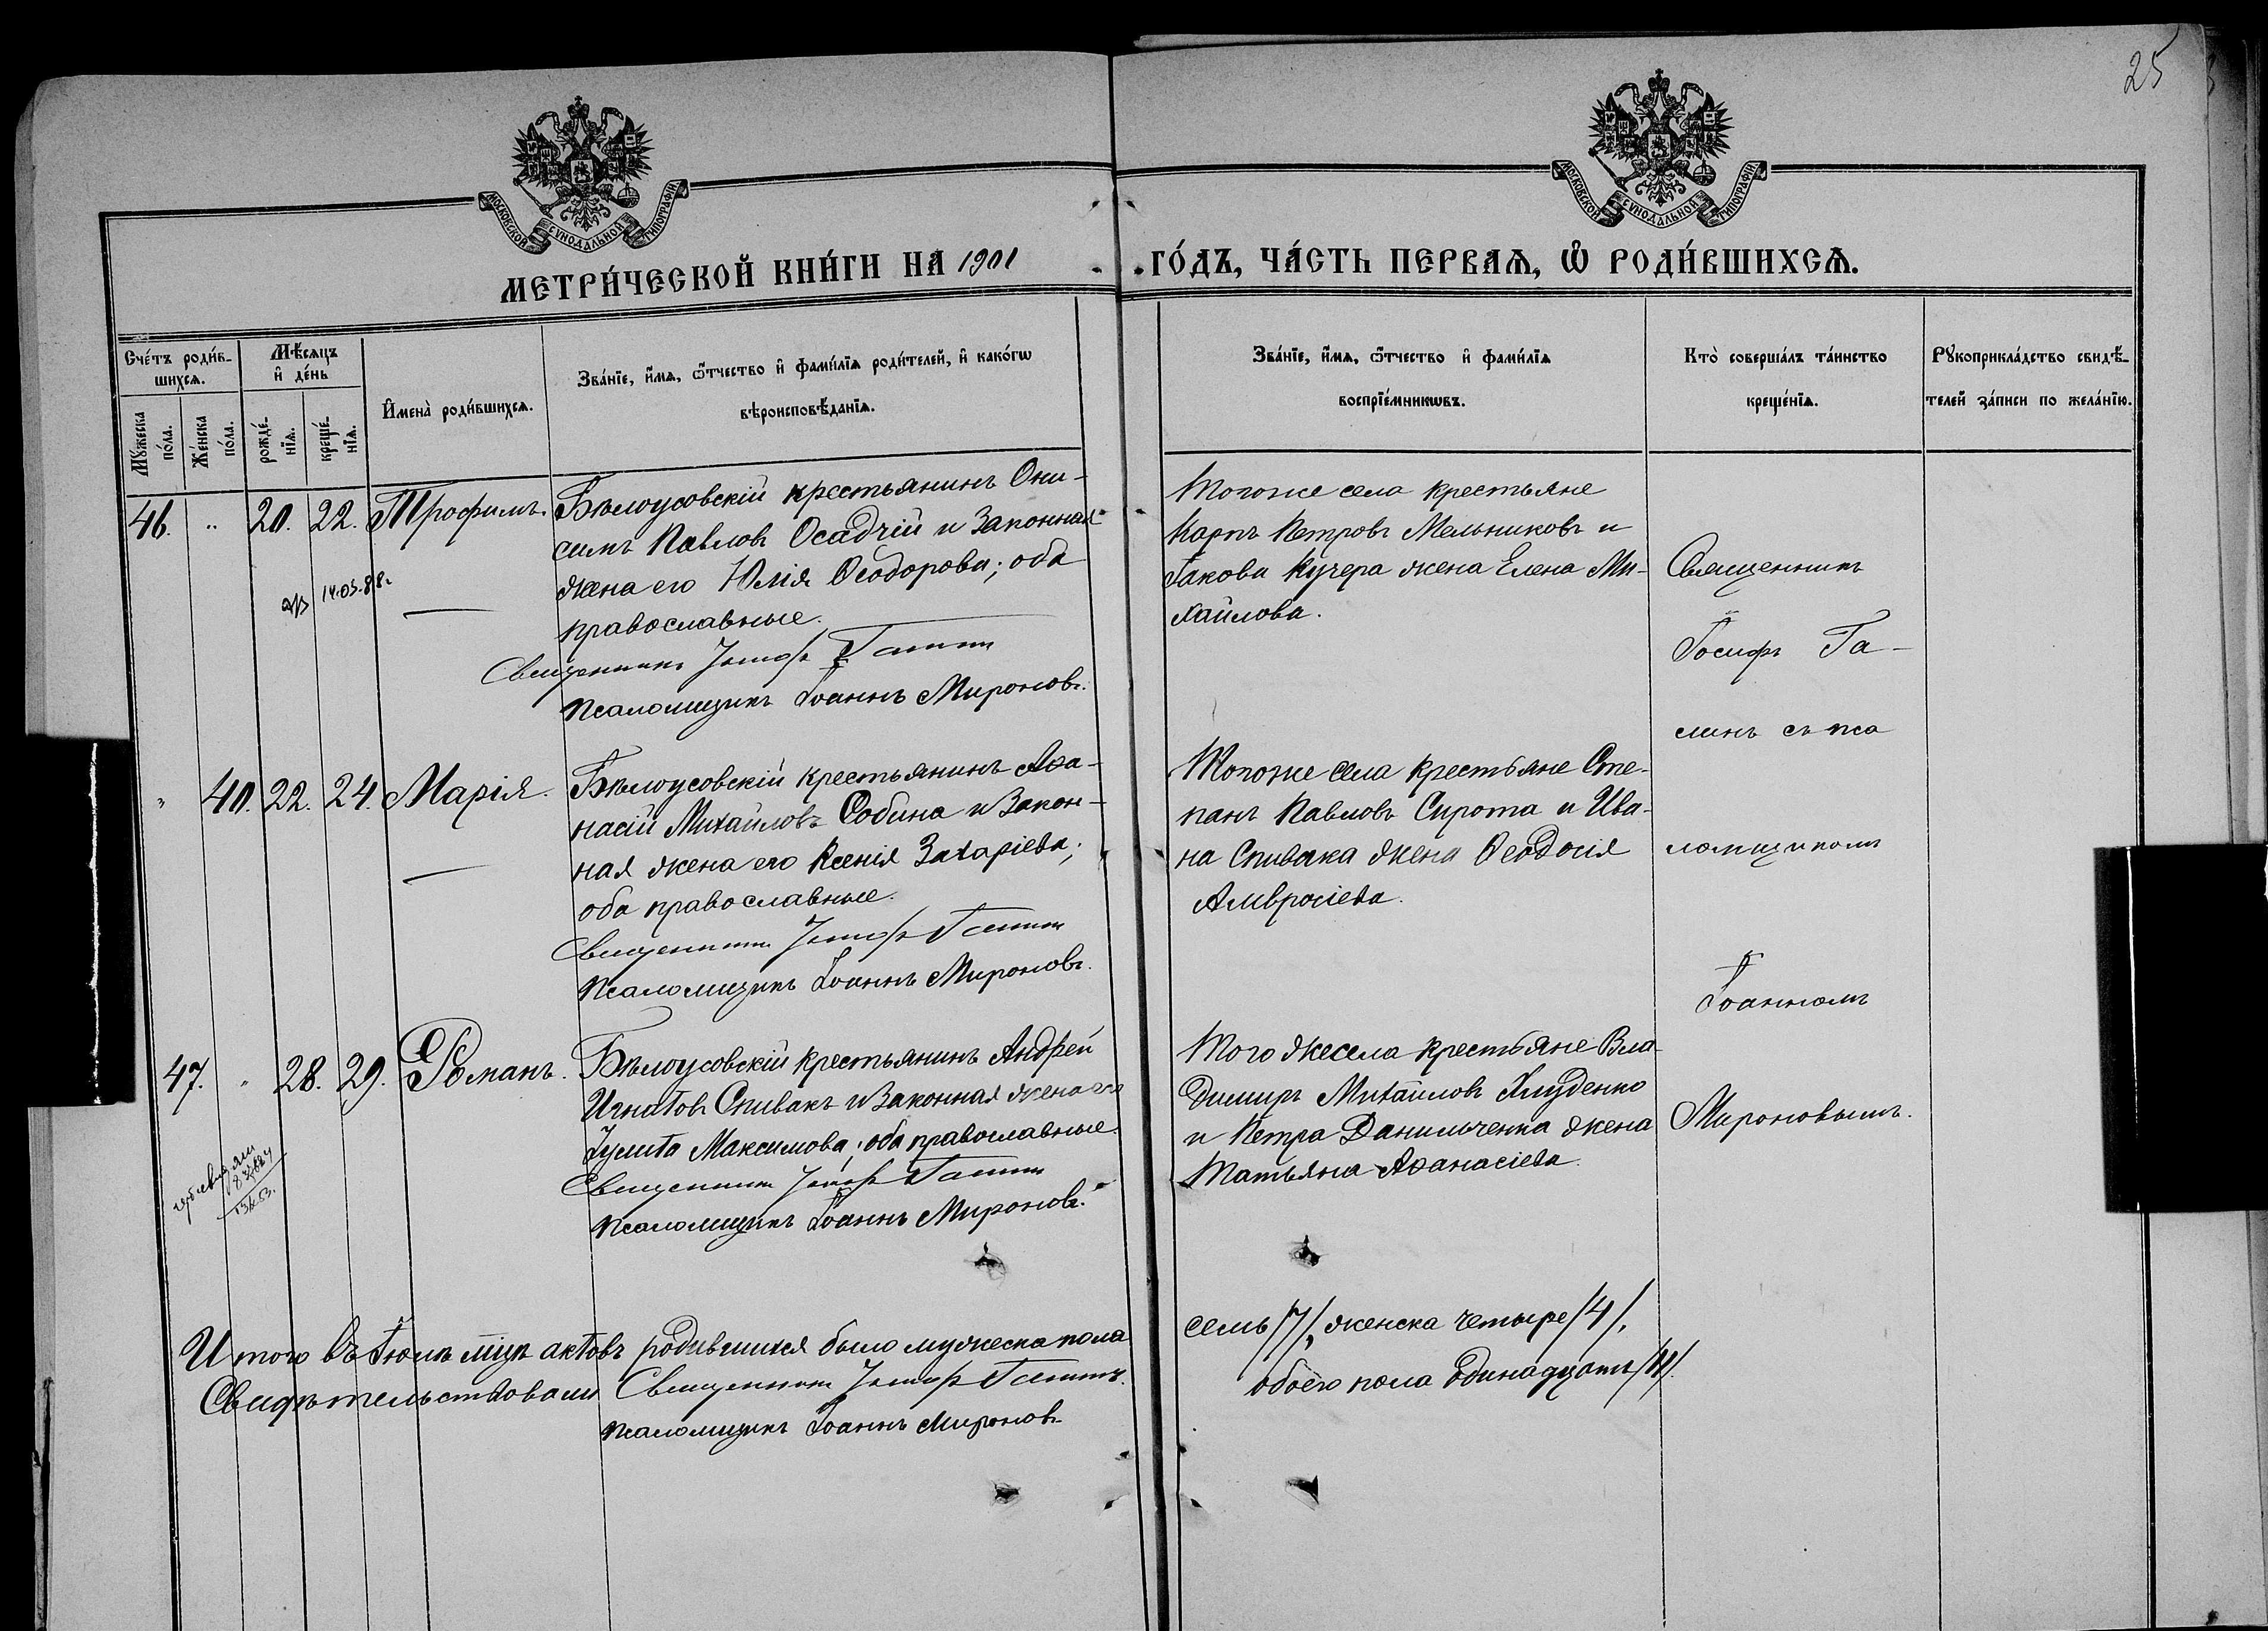 25
МОСКОВСКОЙ СѴНОДАЛЬНОЙ ТИПОГРАФІИ
МОСКОВСКОЙ СѴНОДАЛЬНОЙ ТИПОГРАФІИ
МЕТРИ́ЧЕСКОЙ КНИ́ГИ НА 1901 ГО́ДЪ, ЧА́СТЬ ПЕРВАѦ, Ѡ҆ РОДИ́ВШИХСѦ.
Сче́тъ роди́в-
шихсѧ.
Мꙋ́жеска по́ла.
Же́нска по́ла.
Мѣ́сѧцъ
и҆ де́нь
рожде́-
нїѧ.
креще́-
нїѧ.
И҆мена̀ роди́вшихсѧ.
Зва́нїе, и҆́мѧ, ѻ҆́тчество и҆ фами́лїѧ роди́телей, и҆ како́гѡ
вѣроисповѣ́данїѧ.
Зва́нїе, и҆́мѧ, ѻ҆́тчество и҆ фами́лїѧ
воспрїе́мникѡвъ.
Кто̀ соверша́лъ та́инство
креще́нїѧ.
Рꙋкоприкла́дство свидѣ́-
телей за́писи по жела́нїю.
46. " 20. 22. Трофимъ. Бѣлоусовскій крестьянинъ Они-
симъ Павловъ Осадчій и законная
жена его Юлія Ѳеодорова; оба
православные.
14.03.88г.
Священникъ Іосифъ Галинъ
Псаломщикъ Іоаннъ Мироновъ.
Тогоже села крестьяне
Карпъ Петровъ Мельниковъ и
Іакова Кучера жена Елена Ми-
хайлова.
" 40. 22. 24. Марія. Бѣлоусовскій крестьянинъ Аѳа-
насій Михайловъ Собина и Закон-
ная жена его Ксенія Захаріева;
оба православные.
Священникъ Іосифъ Галинъ
Псаломщикъ Іоаннъ Мироновъ.
Тогоже села крестьяне Сте-
панъ Павловъ Сирота и Ива-
на Спивака жена Ѳеодосія
Амвросіева.
47. " 28. 29. Романъ. Бѣлоусовскій крестьянинъ Андрей
Игнатовъ Спивакъ и Законная жена его
Іулита Максимова; оба православные.
Священникъ Іосифъ Галинъ
Псаломщикъ Іоаннъ Мироновъ.
Того же села крестьяне Вла-
димиръ Михайловъ Хлуденко
и Петра Данильченка жена
Татьяна Аѳанасіева.
Священникъ
Іосифъ Га-
линъ съ пса
ломщикомъ
Іоанномъ
Мироновымъ.
Итого въ Іюлѣ мцѣ актовъ родившихся было мужеска пола семь /7/, женска четыре /4/,
обоего пола одинадцать /11/.
Свидѣтельствовали Священникъ Іосифъ Галинъ.
Псаломщикъ Іоаннъ Мироновъ